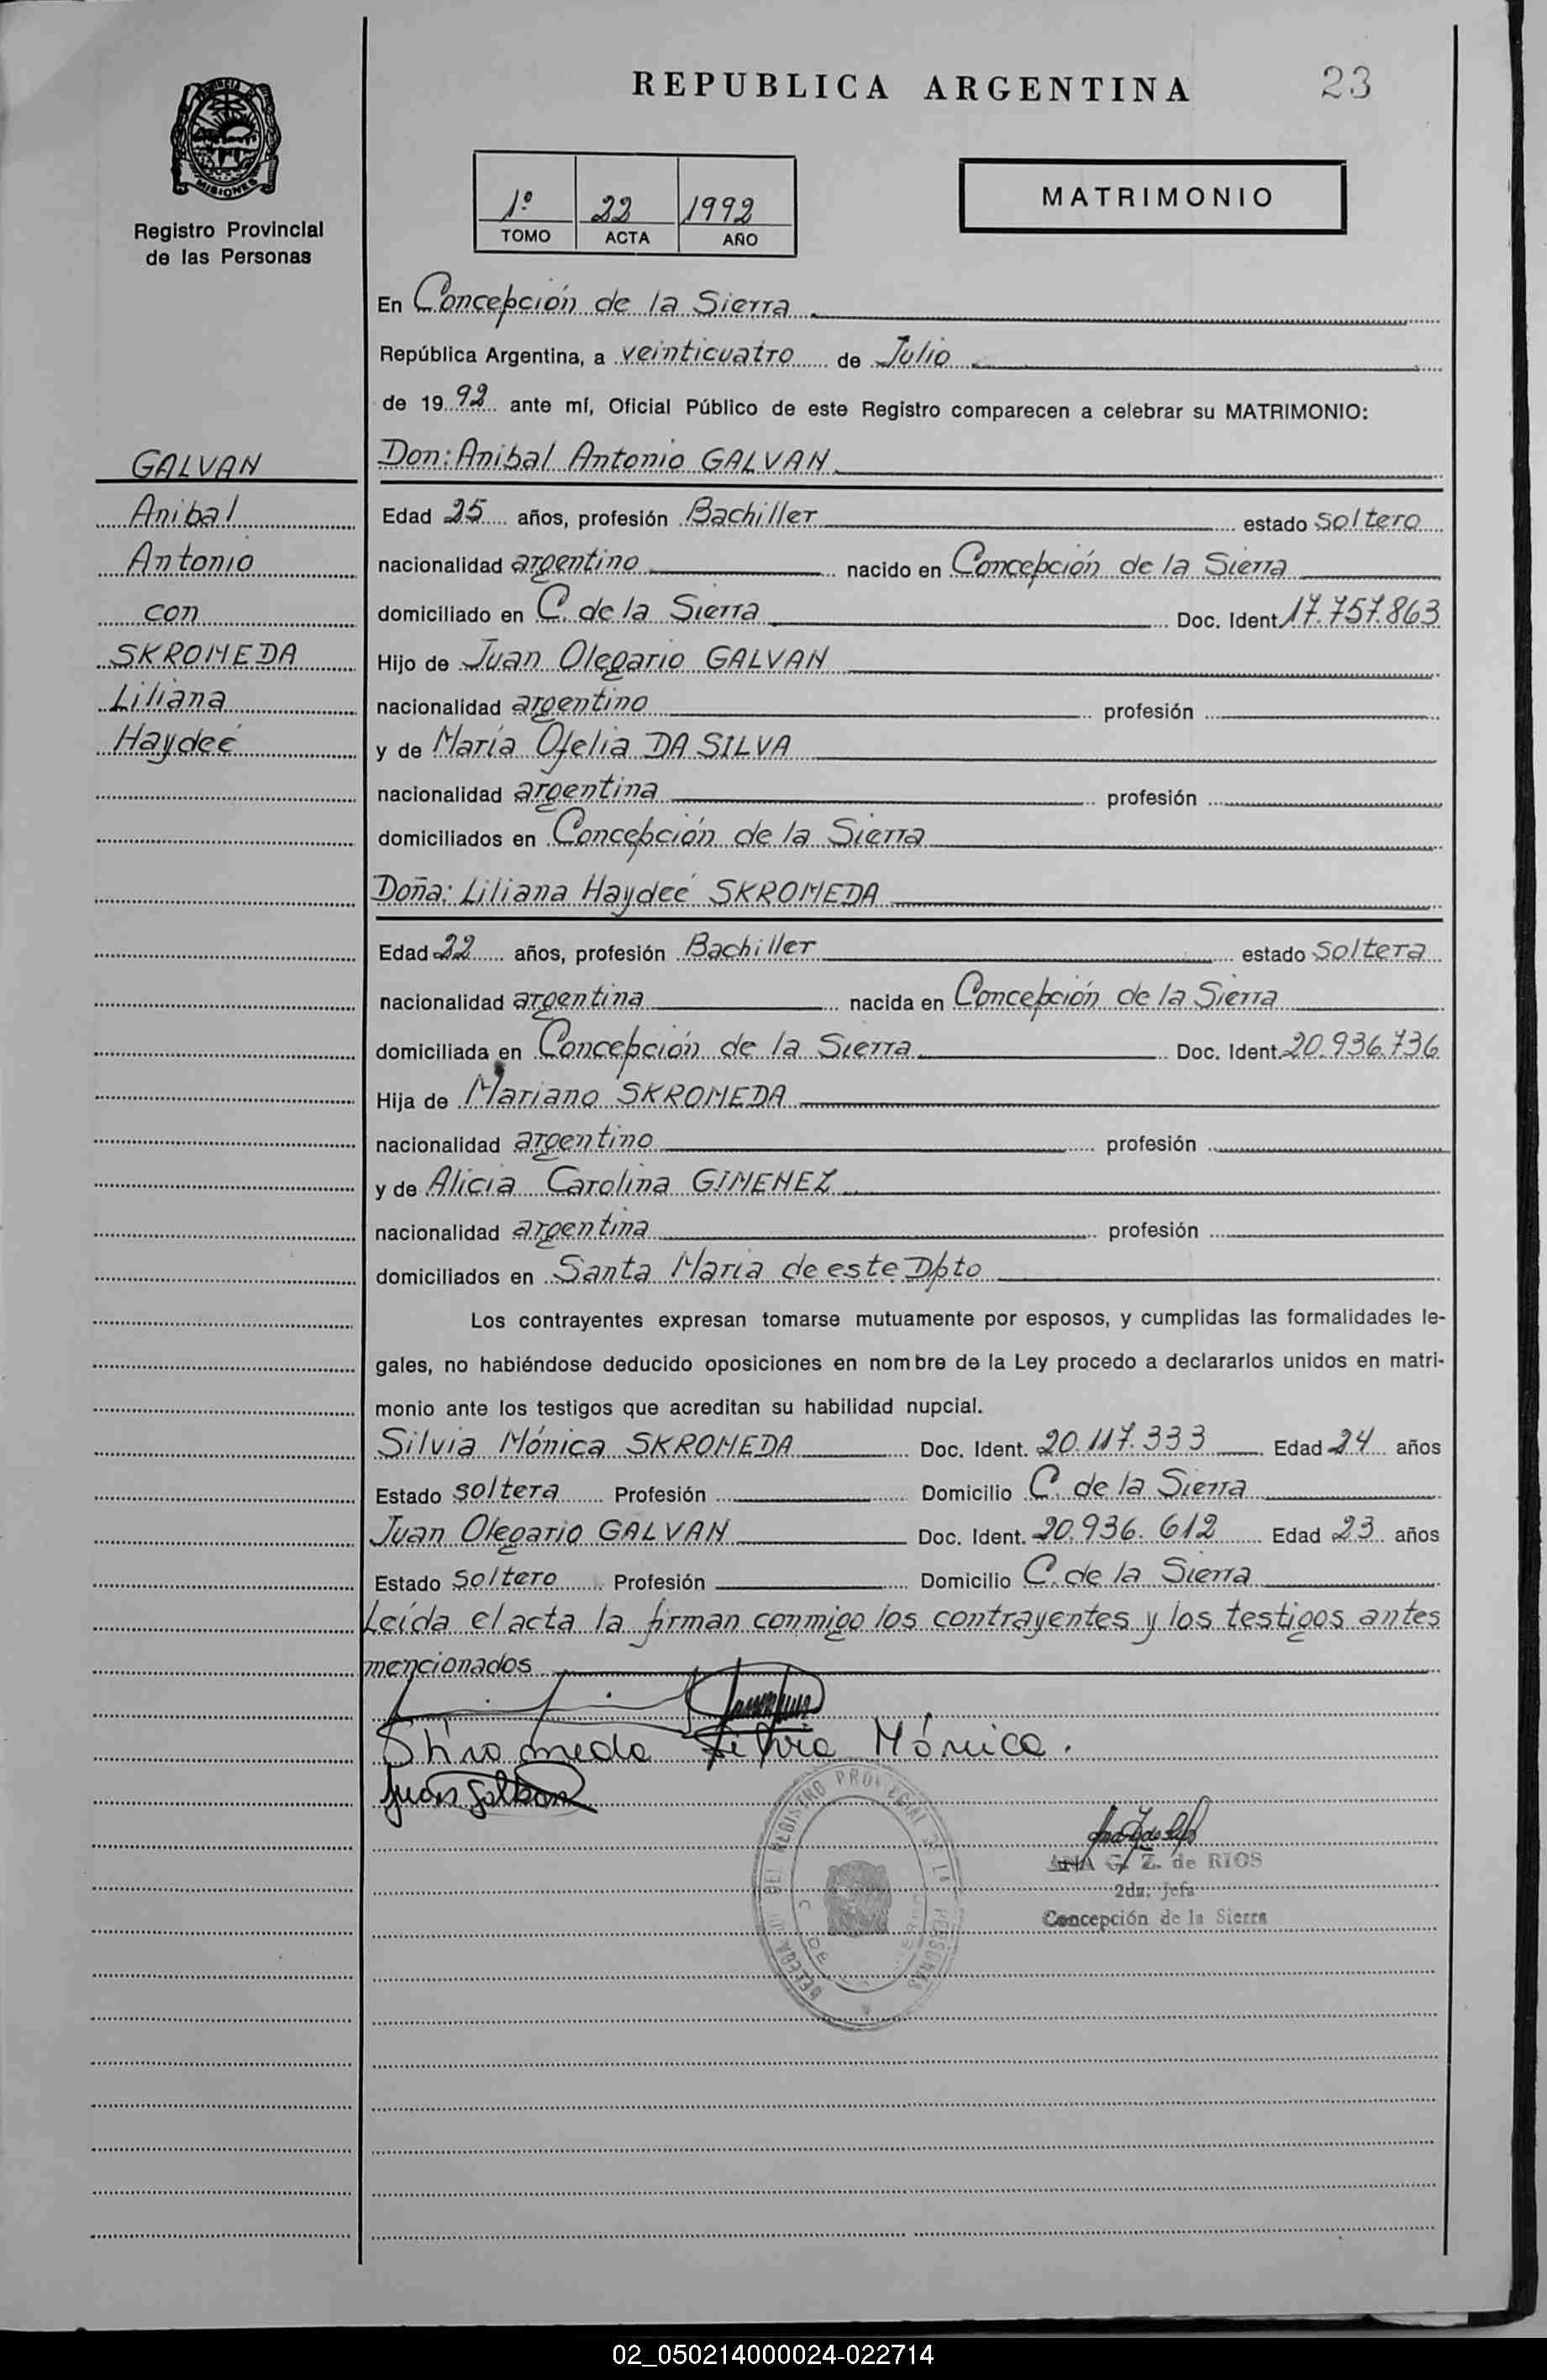 REPUBLICA ARGENTINA 23
PROVINCIA DE
MISIONES
Registro Provincial
de las Personas
1º 22 1992
TOMO ACTA AÑO
MATRIMONIO
En Concepción de la Sierra
República Argentina, a veinticuatro de Julio
de 1992 ante mí, Oficial Público de este Registro comparecen a celebrar su MATRIMONIO:
GALVAN
Anibal
Antonio
con
SKROMEDA
Liliana
Haydeé
Don: Anibal Antonio GALVAN
Edad 25 años, profesión Bachiller estado soltero
nacionalidad argentino nacido en Concepción de la Sierra
domiciliado en C. de la Sierra Doc. Ident. 17.757.863
Hijo de Juan Olegario GALVAN
nacionalidad argentino profesión
y de María Ofelia DA SILVA
nacionalidad argentina profesión
domiciliados en Concepción de la Sierra
Doña: Liliana Haydeé SKROMEDA
Edad 22 años, profesión Bachiller estado soltera
nacionalidad argentina nacida en Concepción de la Sierra
domiciliada en Concepción de la Sierra Doc. Ident. 20.936.736
Hija de Mariano SKROMEDA
nacionalidad argentino profesión
y de Alicia Carolina GIMENEZ
nacionalidad argentina profesión
domiciliados en Santa María de este Dpto
Los contrayentes expresan tomarse mutuamente por esposos, y cumplidas las formalidades le-
gales, no habiéndose deducido oposiciones en nombre de la Ley procedo a declararlos unidos en matri-
monio ante los testigos que acreditan su habilidad nupcial.
Silvia Mónica SKROMEDA Doc. Ident. 20.117.333 Edad 24 años
Estado soltera Profesión Domicilio C. de la Sierra
Juan Olegario GALVAN Doc. Ident. 20.936.612 Edad 23 años
Estado soltero Profesión Domicilio C. de la Sierra
Leída el acta la firman conmigo los contrayentes y los testigos antes
mencionados
Skromeda Silvia Mónica.
Juan Galban
DEL REGISTRO PROVINCIAL DE LAS PERSONAS
ANA G. Z. de RIOS
2da. Jefa
Concepción de la Sierra
02_050214000024-022714